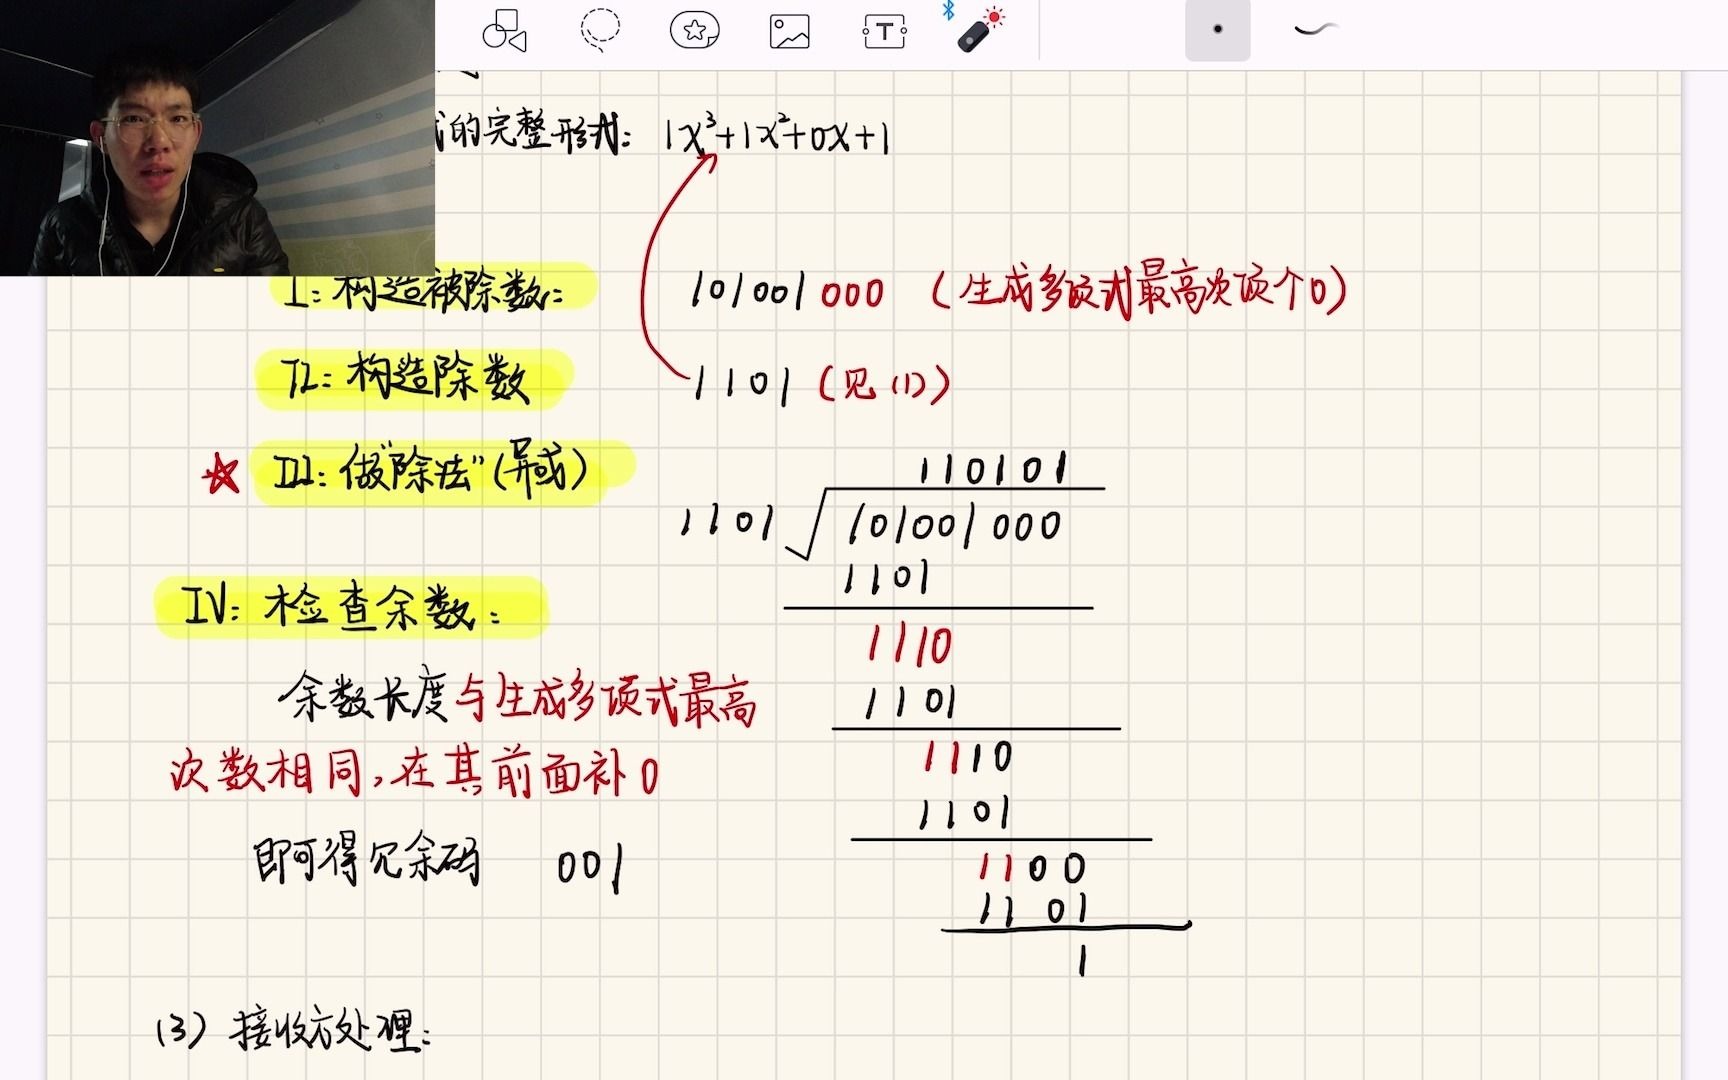 式的完整形式: 1x³+1x²+0x+1
I: 构造被除数: 101001 000 (生成多项式最高次项个0)
II: 构造除数 1101 (见(1))
III: 做"除法"(异或)
110101
1101 101001000
1101
1110
1101
1110
1101
1100
1101
1
IV: 检查余数:
余数长度与生成多项式最高
次数相同,在其前面补0
即可得冗余码 001
(3) 接收方处理:
T